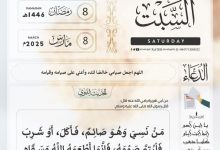 السَّبْت
SATURDAY
RAMADAN
8 رمضان 1446هـ
MARCH
8 مارس 2025م
الدعاء
اللهم اجعل صيامي خالصًا لك، وأعني على صيامه وقيامه
الحديث النبوي
مَنْ نَسِيَ وَهُوَ صَائِمٌ، فَأَكَلَ، أَوْ شَرِبَ